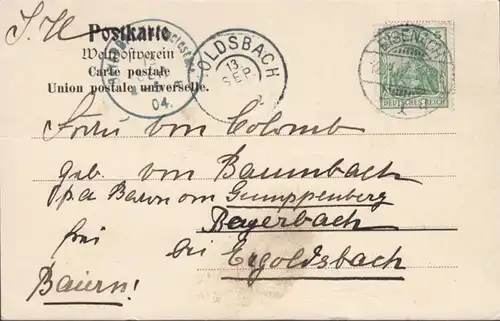 I. H.
Postkarte
Weltpostverein
Carte postale
Union postale universelle.
04.
OLDSBACH
13
SEP.
EISENACH
DEUTSCHES REICH
5
1
Frau von Colomb
geb. von Baumbach
p. a. Baron von Gumppenberg
Bayerbach
bei
Ergoldsbach
Baiern!